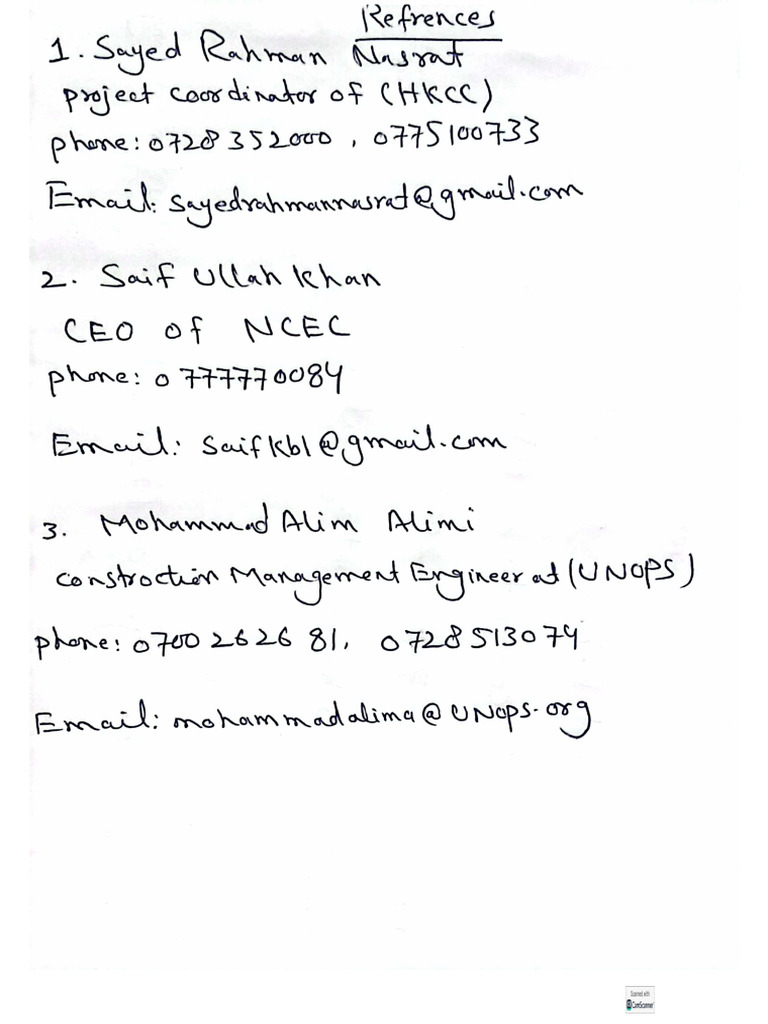 Refrences
1. Sayed Rahman Nasrat
project coordinator of (HKCC)
phone: 0728352000, 0775100733
Email: sayedrahmannasrat@gmail.com
2. Saif Ullah Khan
CEO of NCEC
phone: 0777770084
Email: saifkbl@gmail.com
3. Mohammad Alim Alimi
constroction Management Engineer at (UNOPS)
phone: 0700262681, 0728513079
Email: mohammadalima@UNOPS.org
Scanned with
CamScanner